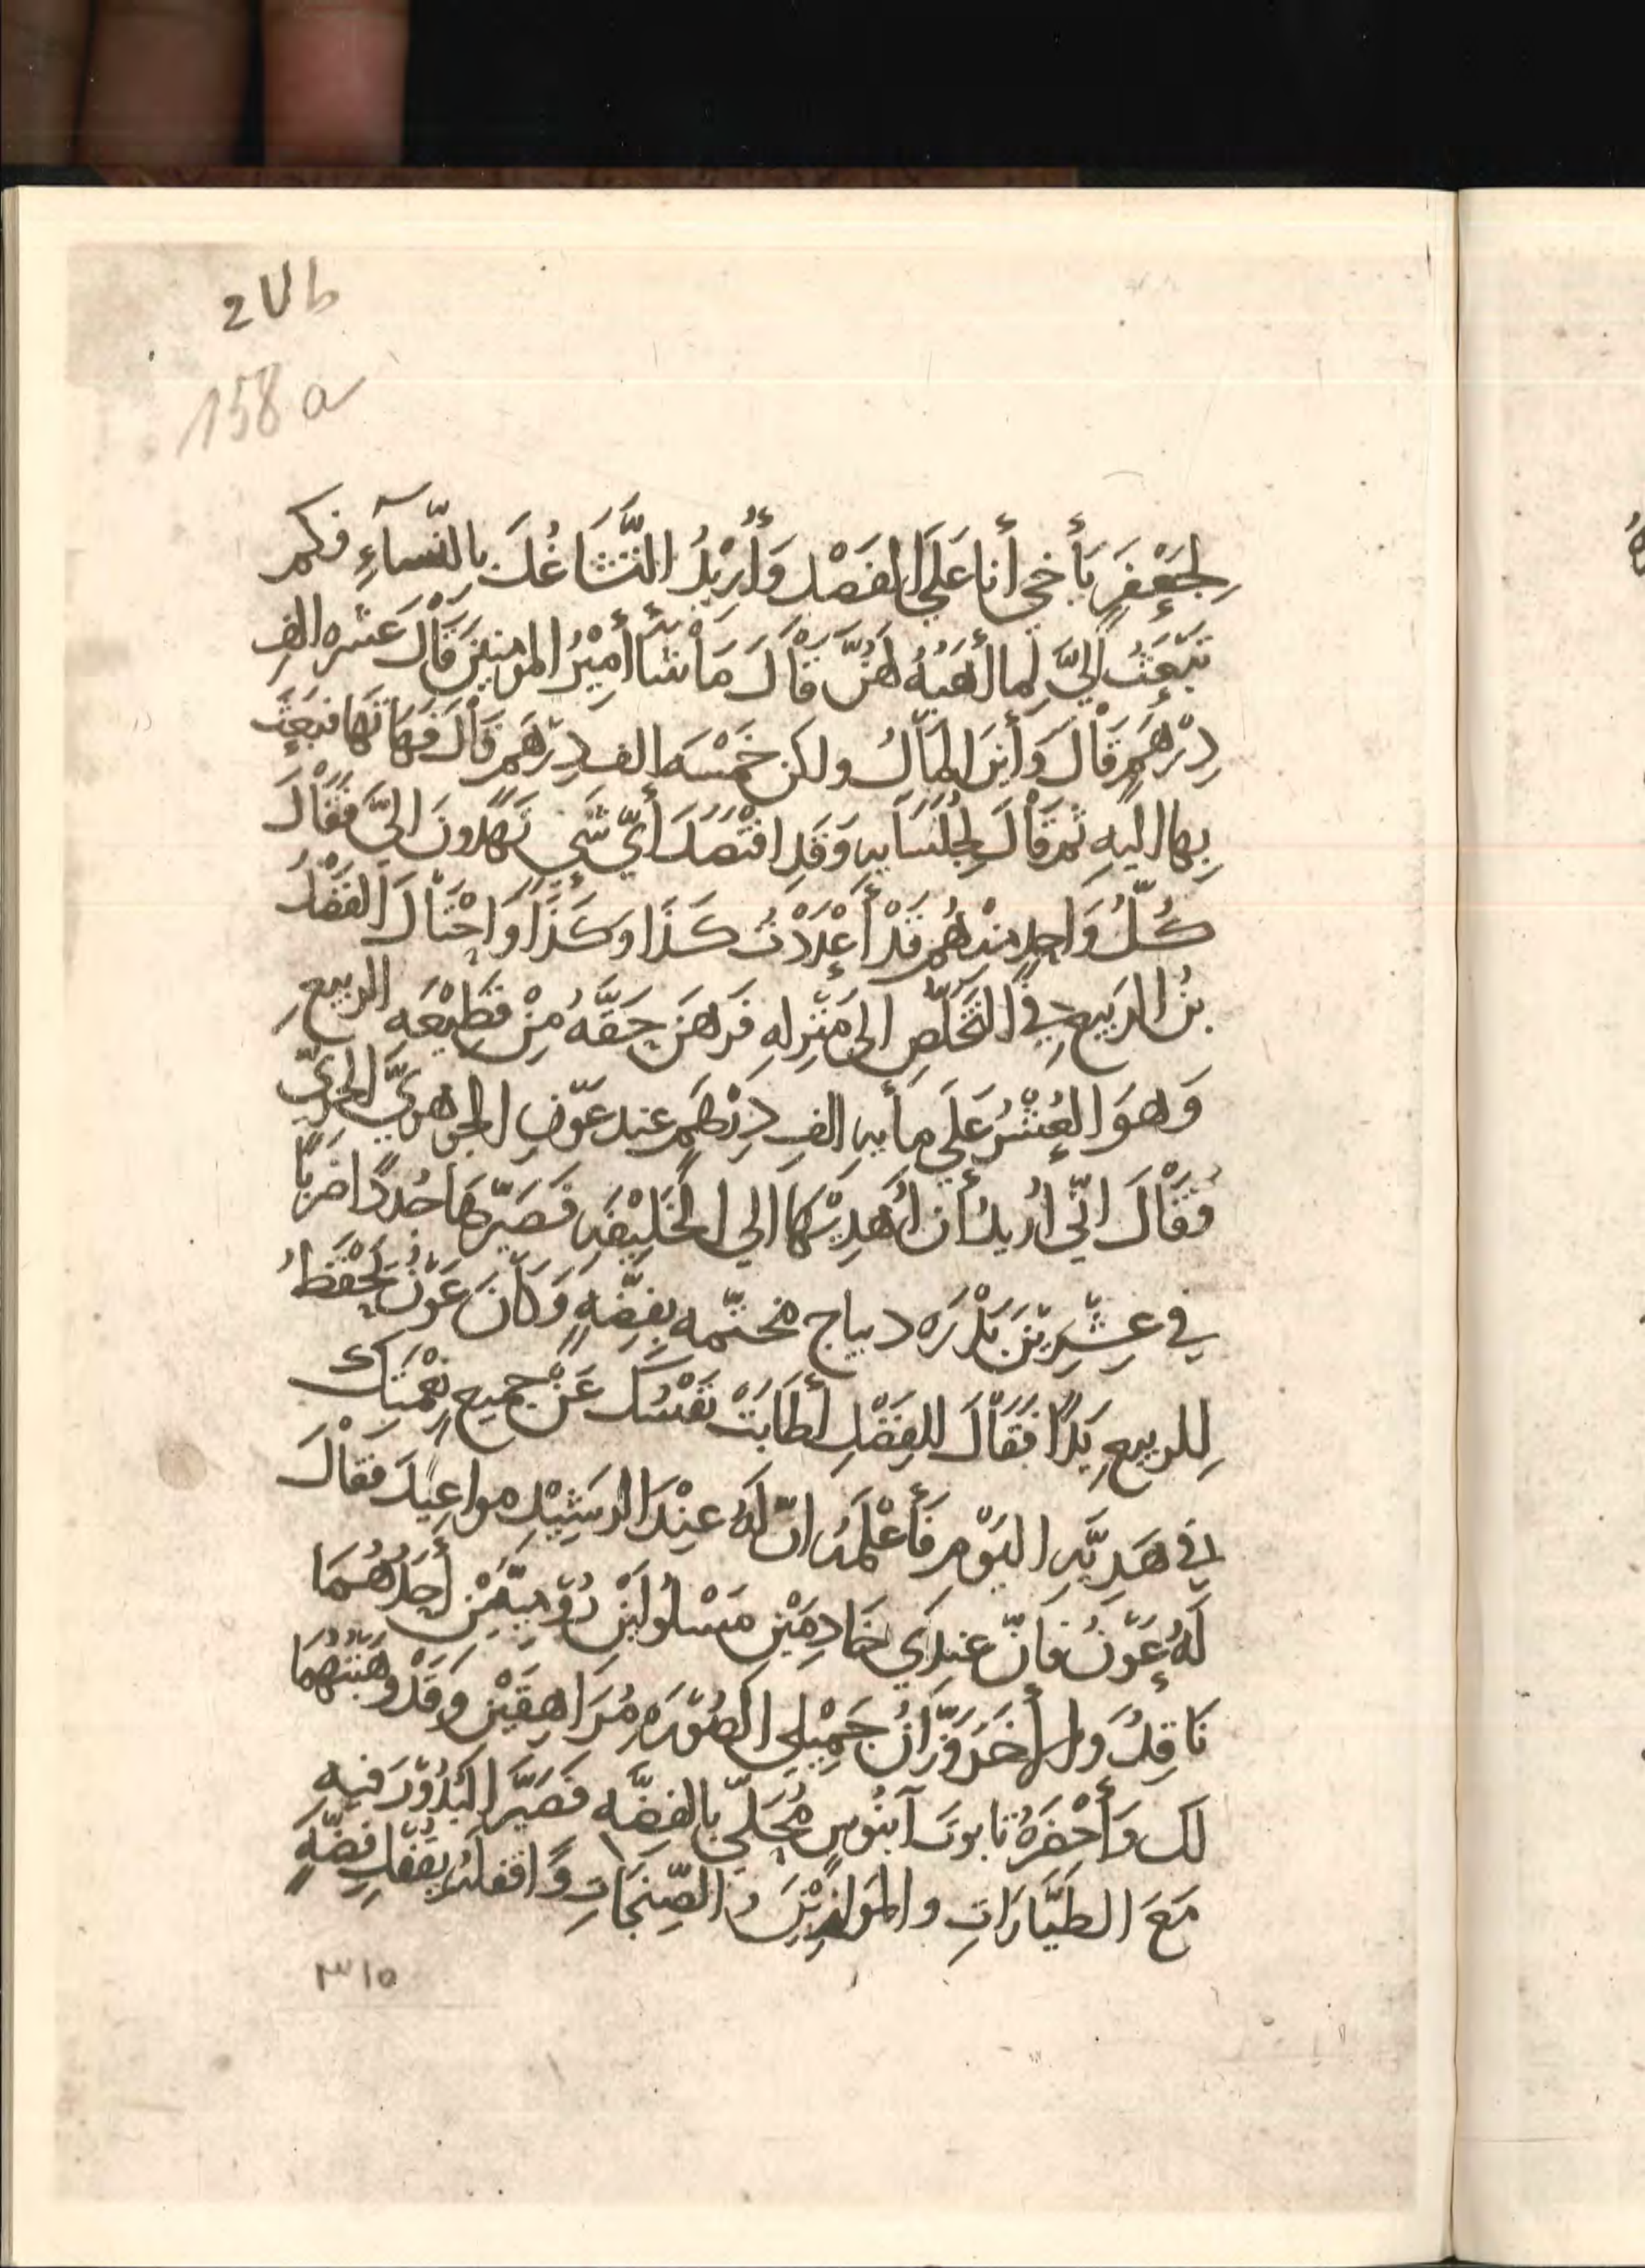 2Ub
158a
لِجَعْفَرٍ يَأَخي أنا عَلَي الفَصْد وَأُرِيْدُ التَّشَاغُلَ بِالنّسآءِ فكم
تَبْعَثُ اليَّ لِما أهَبُهُ لهُنَّ قَاْلَ مَاْ شَأَ أَمِيْرُ المومنِيْنَ قَاْلَ عَشره الفِ
دِرْهَمٍ قَاْلَ وَأَيْنَ المَاْلُ ولكن خَمْسَه الف دِرْهَم قَاْلَ فَهَاتها فبَعَثَ
بِها اليهِ ثمّ قَاْلَ لِجُلَسَايهِ وَقَدِ افتَصَدَ أيّ شَيٍ تُهدونَ اليَّ فَقَاْلَ
كُلُّ وَاحِدٍ منهُم قَدْ أَعْدَدْتُ كَذَا وَكَذَا وَاحْتَاْلَ الفَضْلُ
بنُ الرَبيع فِي التَخَلّصِ الى مَنْزِلهِ فَرَهَنَ حَقَّهُ مِنْ قَطِيْعَهِ الربيعِ
وَهوَ العُشْرُ عَلَي مأيهِ الفِ دِرْهَمٍ عند عَوْنِ الجوهريّ الحريّ
فَقَاْلَ انّي اُريدُ أن أُهْدِيْهَا الي الخَلِيْفَهِ فَصَيّرهَا جُدُدًا ضَربًا
في عِشْرِيْنَ بَدْرَه ديباج مختّمه بِفِضَّهٍ وَكاْنَ عَوْنُ يَحْفَظُ
لِلربيعِ يَدًا فَقَاْلَ للفَضْلِ أطَابَتْ نَفْسُكَ عَنْ جميع نِعْمَتِكَ
في هَدِيَّهِ اليَوْمِ فَأَعْلَمَهُ انّ لَهُ عِنْدَ الرشِيْدِ مواعِيْدَ فَقَاْلَ
لَهُ عَوْنُ فَانّ عندِي خَادِمَيْنِ مَسْلُولَيْنِ رُوْمِيَّيْنِ أَحَدُهُمَا
نَاقِدُ وَالأَخَرُ وَزَّانُ جَمِيْلي الصُوْرَهِ مُرَاهِقَيْنِ وَقَدْ وَهَبْتُهُمَا
لَكَ وَأَحْضَرَهُ تابوتَ آبنُوسٍ مُحَلّي بالفِضَّهِ فَصَيَّرَ البُدُوْرَ فيهِ
مَعَ الطَيَّارَاتِ والمَوَازِيْنَ وَ الصِّنجَاتِ وَاقفلَهُ بقُفْلِ فِضّهٍ
٣١٥